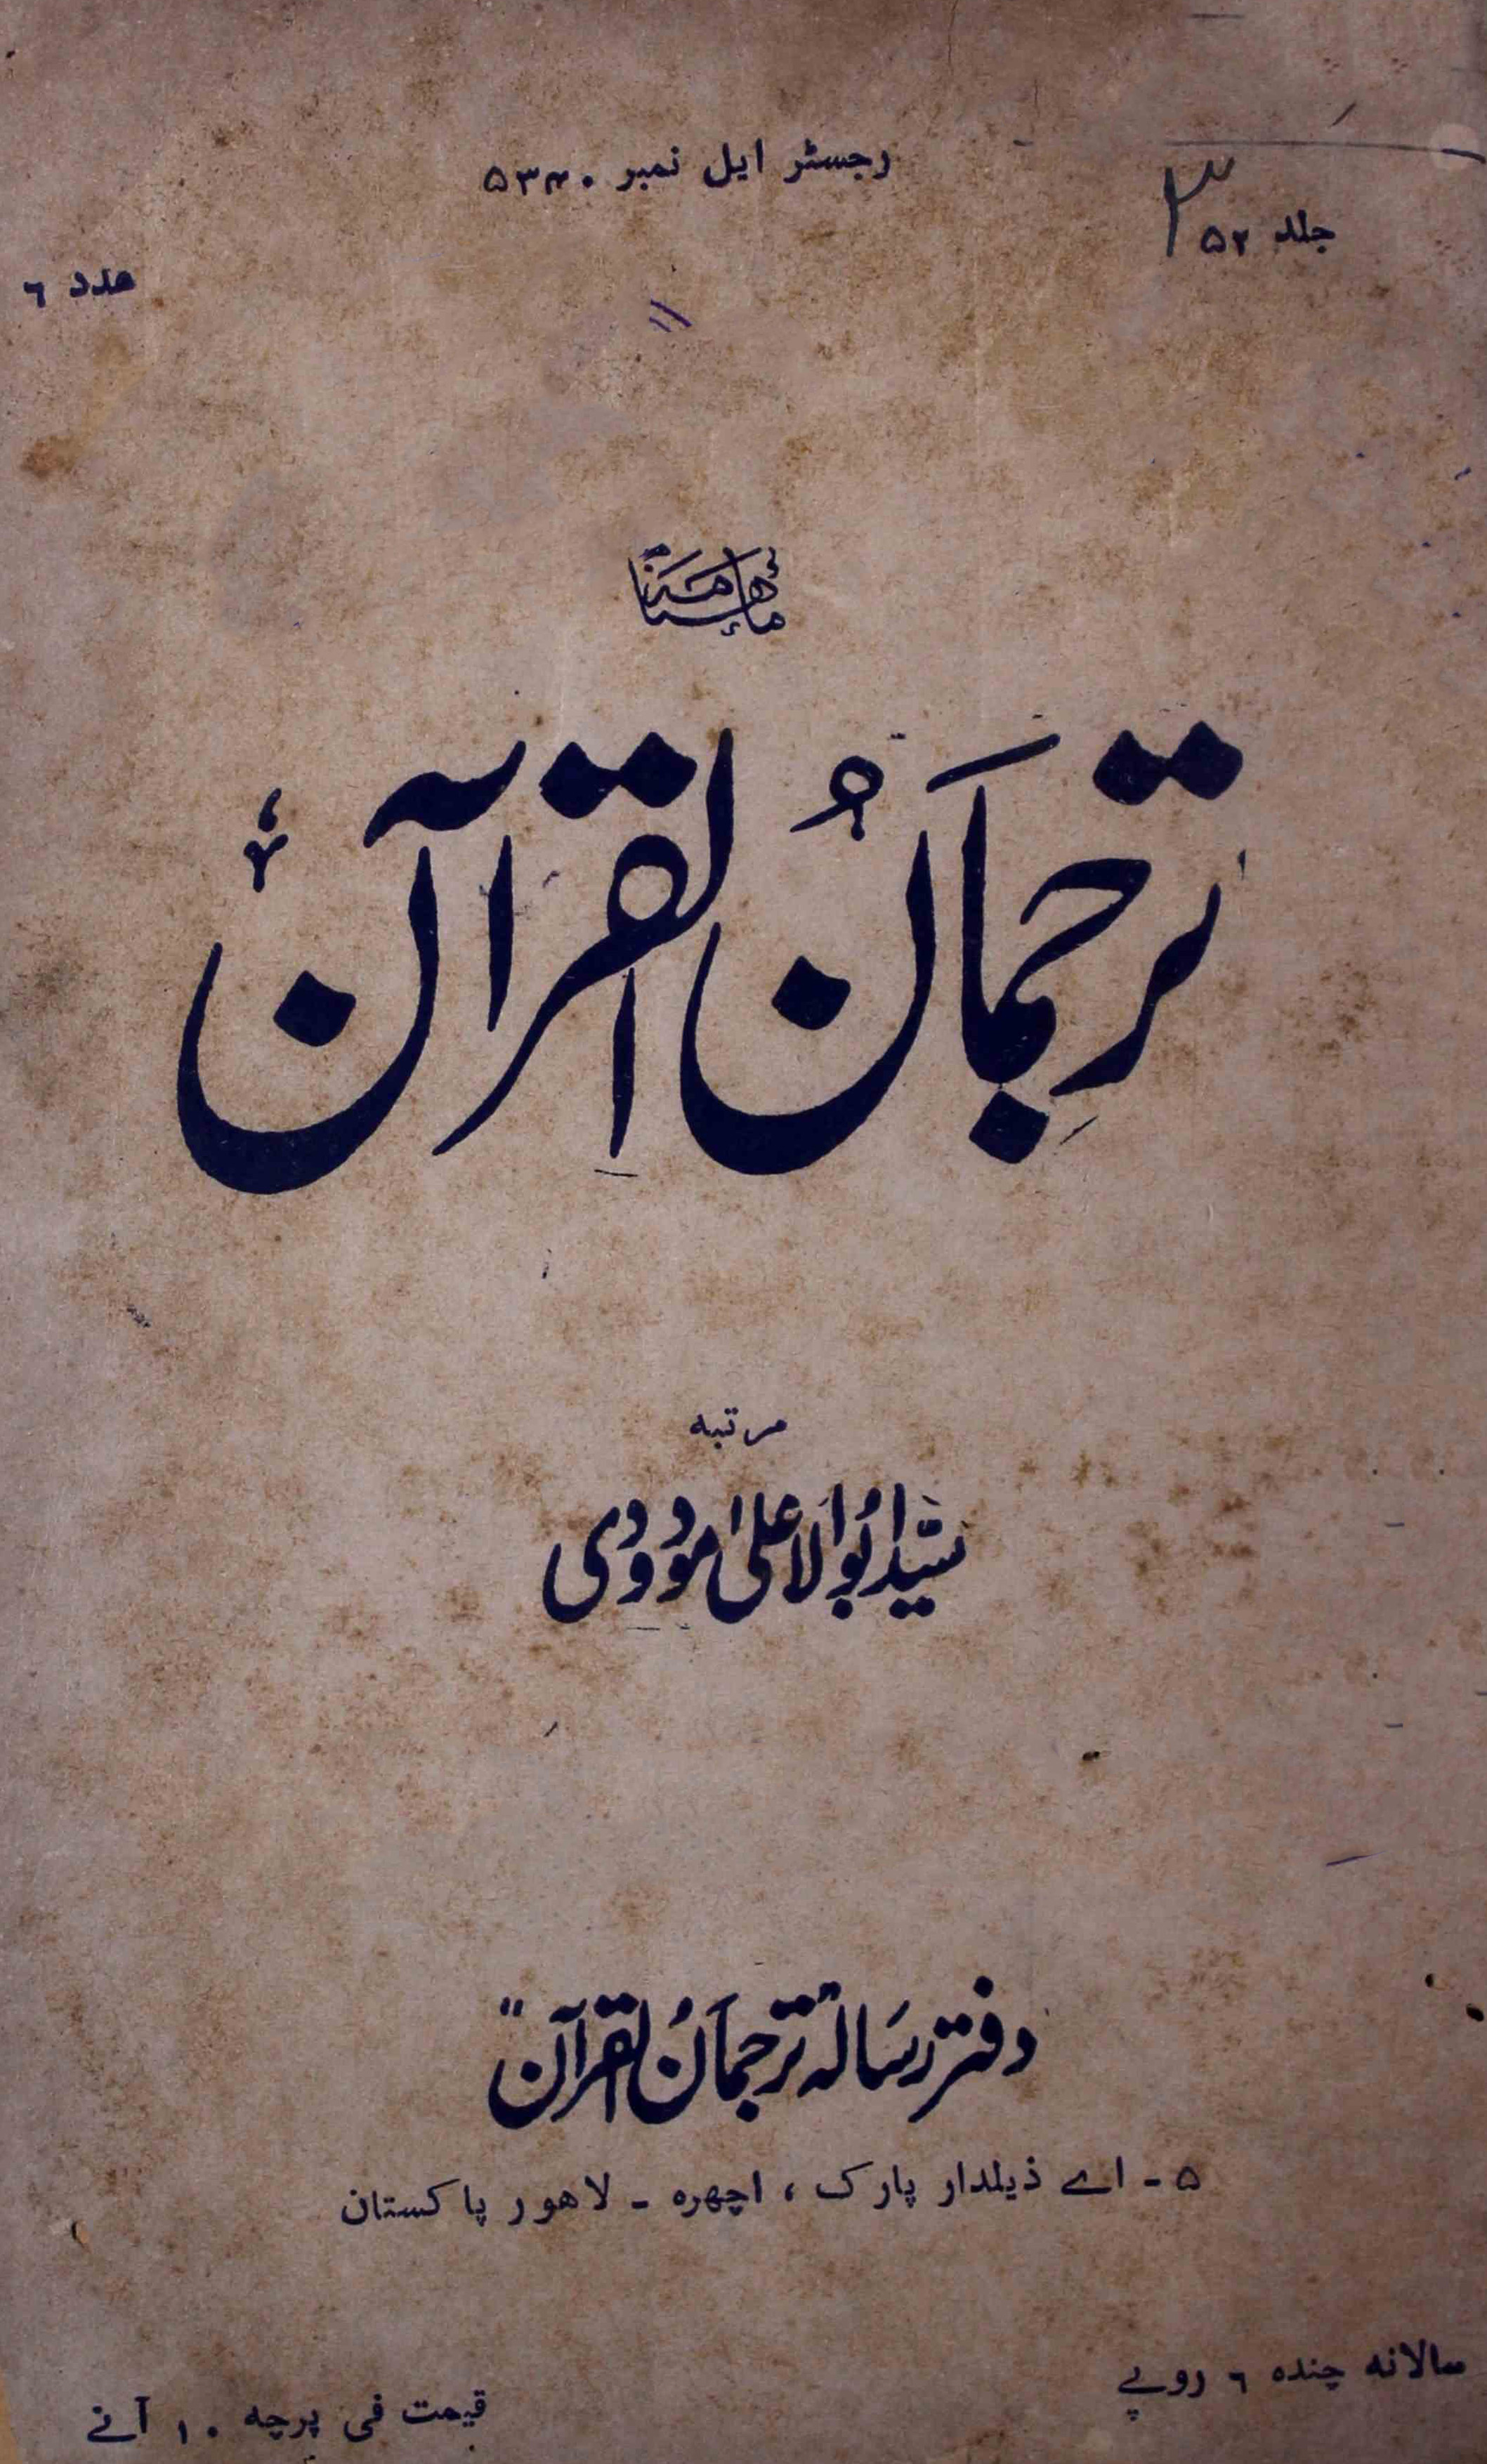 رجسٹر ایل نمبر ۵۳۴۰
جلد ۵۲
عدد ٦
ماھنامہ
ترجمانُ القرآن
مرتبہ
سید ابوالاعلیٰ مودودی
دفتر رسالہ "ترجمانُ القرآن"
۵ - اے ذیلدار پارک ، اچھرہ - لاھور پاکستان
سالانہ چندہ ٦ روپے
قیمت فی پرچہ ۱۰ آنے